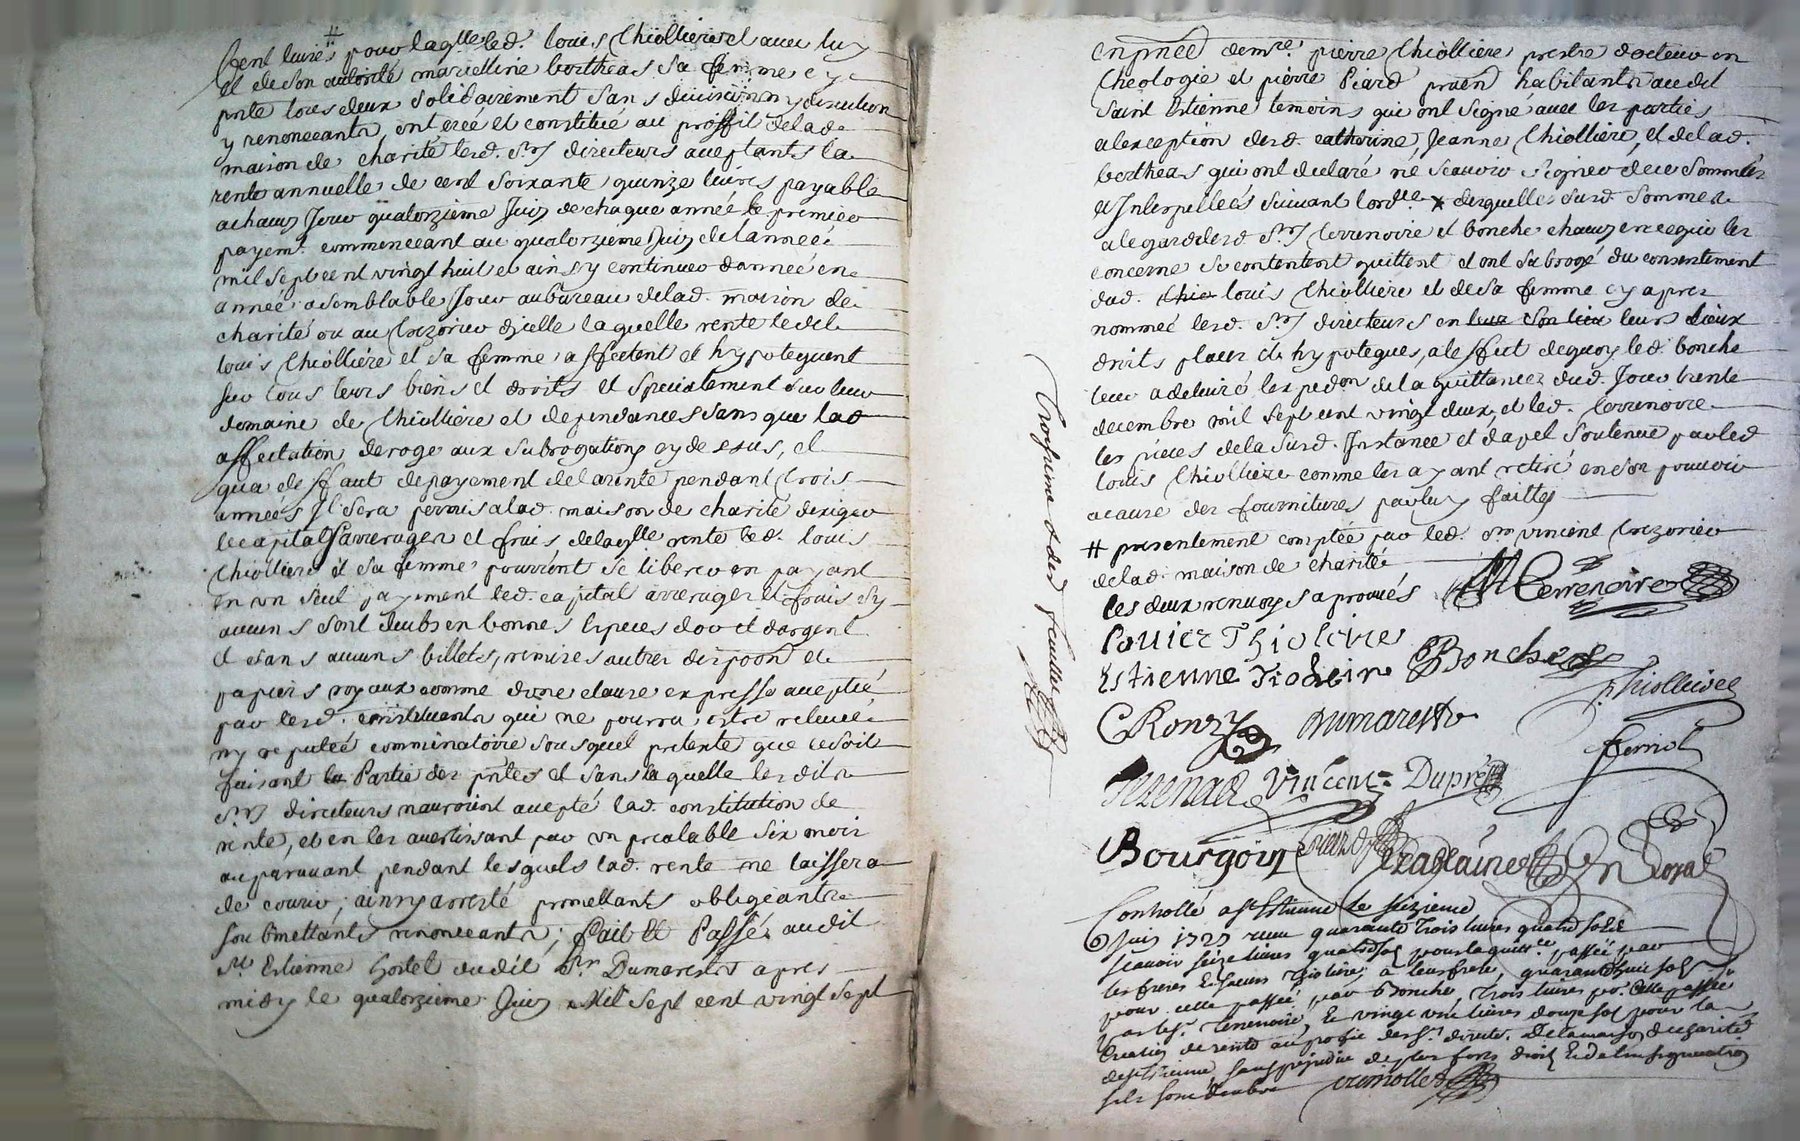 Cent livres # pour laqlle led. Louis Chiollieres et avec luy
et de son autorité marcelline bertheas sa femme cy
pnte tous deux solidairement sans division ny discution
y renonceants, ont creé et constitué au proffit de lad.
maison de charité lesd. Srs directeurs aceptants la
rente annuelle de cent soixante quinze livres payable
a chacun jour quatorzieme Juin de chaque année le premier
payemt. commenceant au quatorzieme Juin de lannée
mil sept cent vingt huit et ainsy continuer dannée en
année a semblable jour au bureau de lad. maison de
charité ou au trezorier dicelle laquelle rente led.
louis Chiolliére et sa femme affectent et hypotequent
sur tous leurs biens et droits et specialement sur leur
domaine de Chiolliere et dependances sans que lad
affectation deroge aux subrogations cy dessus, et
qua deffaut de payement de la rente pendant trois
années Il sera permis a lad. maison de charité dexiger
le capital arrerages et frais de laqlle rente led. louis
Chiolliere et sa femme pourront se liberer en payant
en un seul payement led. capital arrerages et frais sy
aucuns sont deubs en bonnes especes dor et dargent
et sans aucuns billets, remises autres dispoon et
papiers royaux comme donc clause expresse aceptée
par lesd. constituants qui ne pourra estre relevée
ny reputeé comminatoire sous quel pretexte que ce soit
faisant la Partie des pntes et sans laquelle lesdits
Srs directeurs nauroient accepté lad. constitution de
rente, et en les avertissant par un prealable six mois
auparavant pendant lesquels lad. rente ne laissera
de courir; ainsy arresté promettants obligeants
soubmettants renonceants; fait et Passé audit
St. Estienne hostel dudit Sr Dumarestz apres
midy le quatorzieme Juin Mil sept cent vingt sept
en pnce de mre pierre Chiolliere prestre docteur en
theologie et pierre Picard praen habitants audit
saint Estienne temoins qui ont signé avec les parties
a lexception desd. catherine, Jeanne Chiolliére, et de lad.
bertheas qui ont declaré ne scavoir signer de ce sommées
et Interpellées suivant lordce x desquelles susd. sommes
a legard desd Srs terrenoire et bonche chacun en ce qui les
concerne se contentent quittent et ont subrogé du consentement
dud. Chio louis Chiolliere et de sa femme cy apres
nommée lesd. Srs directeurs en leur son lieu leurs Lieux
droits places et hypoteques, a leffect de quoy led. bonche
leur a delivré lexpedon de la quittance dud. jour trente
decembre mil sept cent vingt deux, et led. terrenoire
les pieces de la susd. Instance et dapel soutenue par led
louis Chiolliere comme les ayant retiré en son pouvoir
a cause des fournitures par luy faittes
# presentement comptée par led. Sr vincent trezorier
de lad. maison de charité
les deux renvoys aprouvés MTerrenoire
Louiez Thioleire
Estienne Tioleire Bonche
PChiolliere
CRonzy Dumarestz
Pernot
Vincent Dupré
Bourgoin Picard
Controllé a St Estienne Le seizieme
Juin 1727 receu quarante trois livres quatre sols
scavoir seize livres quatre sols pour la quittce. passée par
les freres et soeurs Thioliere, a leur frere, quarante huit sols
pour celle passée par Bonche, trois livres pr. celle passée
par le Sr. Terrenoire, et vingt une livres douze sols pour la
creation de rente au profit des Srs direct. De la maison de charité
de St Etienne, sans prejudice de plus forts droits et de linsinuation
sils sont deubs
troisieme et der. feuillet